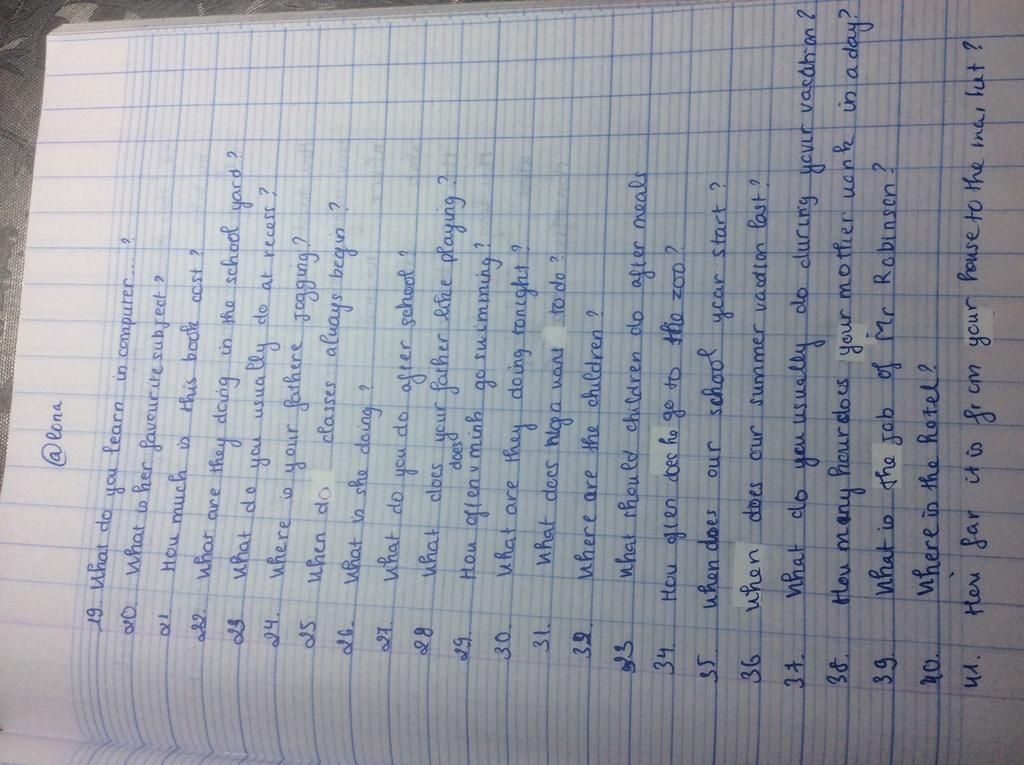 @lona
19. What do you learn in computer....?
20. What is her favourite subject?
21. How much is this book cost?
22. What are they doing in the school yard?
23 What do you usually do at recess?
24. Where is your fathere jogging?
25 When do classes always begin?
26. What is she doing?
27. What do you do after school?
28 What does your father like playing?
29. How often does minh go swimming?
30. What are they doing tonight?
31. What does Nga want to do?
32. Where are the children?
33 What should children do after meals
34. How often does he go to the zoo?
35. When does our school year start?
36 When does our summer vacation last?
37. What do you usually do during your vacation?
38. How many hour does your mother work in a day?
39. What is the job of Mr Robinsen?
40. Where is the hotel?
41. How far it is from your house to the market?